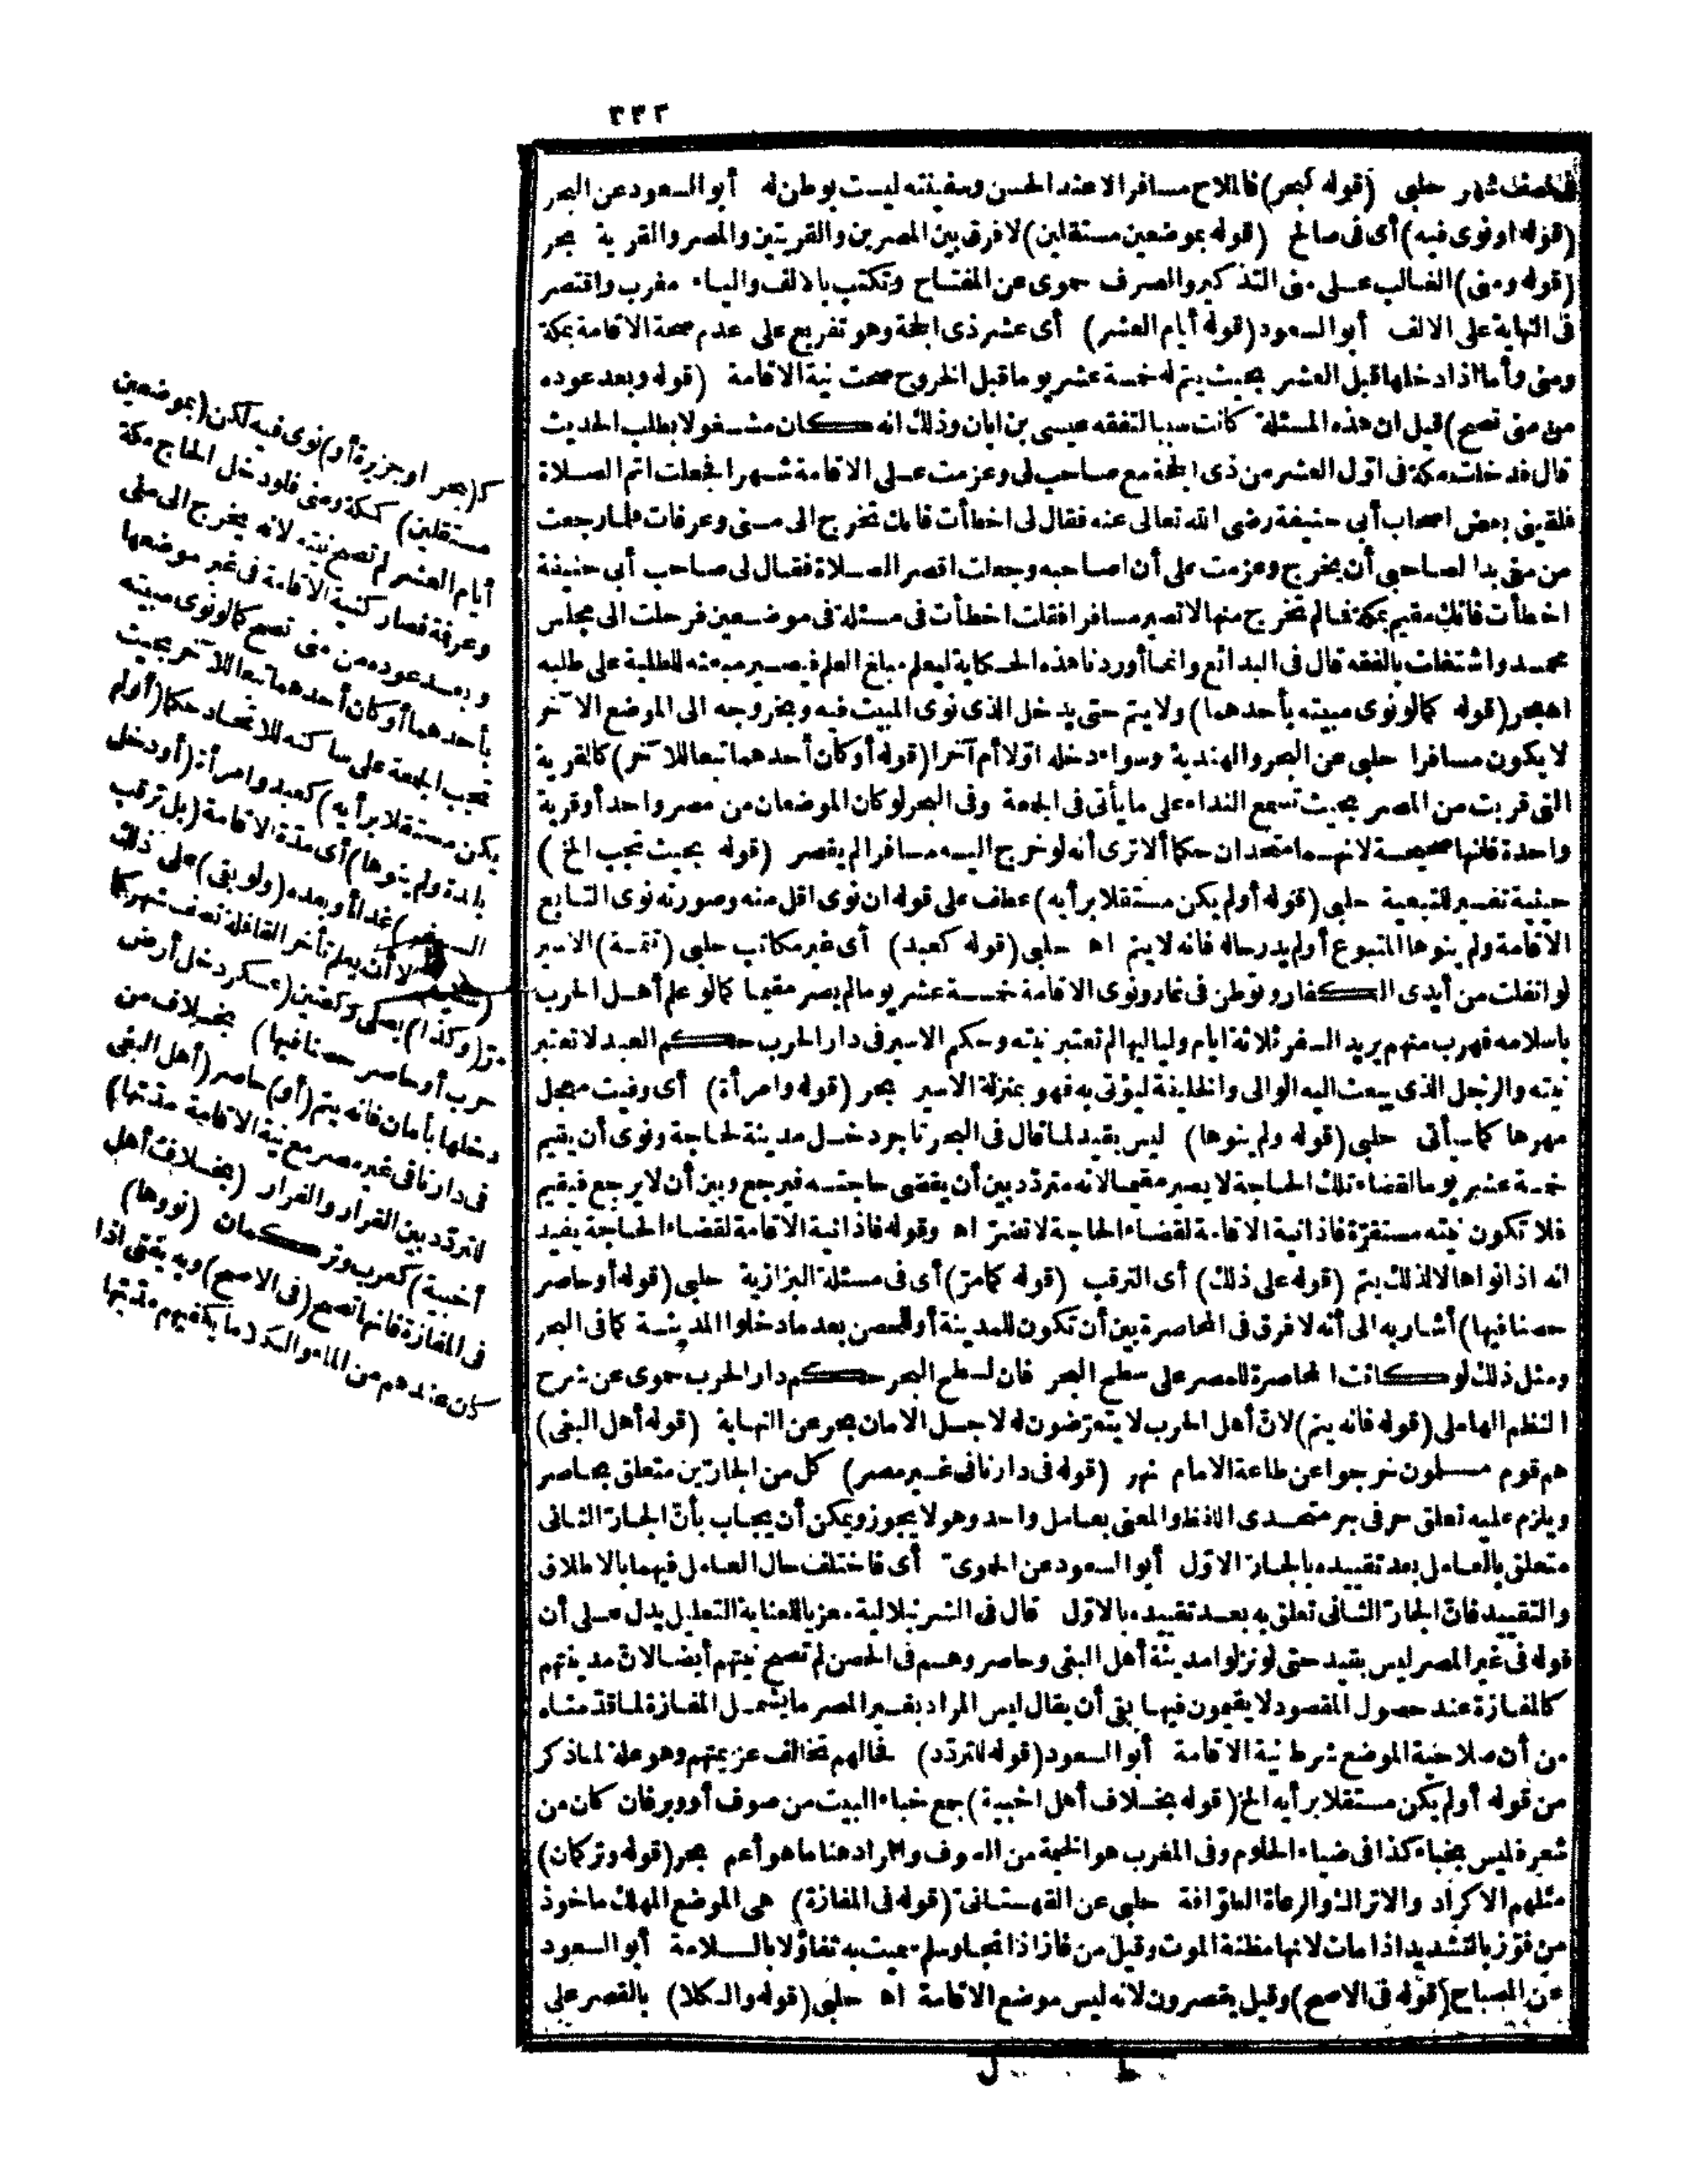 ٣٣٢
فى نصف شهر حلبى (قوله كبحر) فالملاح مسافر الا عند الحسن وسفينته ليست بوطن له أبو السعود عن البحر
(قوله او نوى فيه) أى فى صالح (قوله بموضعين مستقلين) لا فرق بين المصرين والقريتين والمصر والقرية بحر
(قوله ومنى) الغالب على منى التذكير والصرف حموى عن المفتاح وتكتب بالالف والياء مغرب واقتصر
فى النهاية على الالف أبو السعود (قوله أيام العشر) أى عشر ذى الحجة وهو تفريع على عدم صحة الاقامة بمكة
ومنى وأما اذا دخلها قبل العشر بحيث يتم له خمسة عشر يوما قبل الخروج صحت نية الاقامة (قوله وبعد عوده
من منى تصح) قيل ان هذه المسئلة كانت سببا لتفقه عيسى بن ابان وذلك انه كان مشغولا بطلب الحديث
قال فدخلت مكة فى اول العشر من ذى الحجة مع صاحب لى وعزمت على الاقامة شهرا فجعلت اتم الصلاة
فلقينى بعض اصحاب أبى حنيفة رضى الله تعالى عنه فقال لى اخطأت فانك تخرج الى منى وعرفات فلما رجعت
من منى بدا لصاحبى أن يخرج وعزمت على أن اصاحبه وجعلت اقصر الصلاة فقال لى صاحب أبى حنيفة
اخطأت فانك مقيم بمكة فما لم تخرج منها لا تصير مسافرا فقلت اخطأت فى مسئلة فى موضعين فرحلت الى مجلس
محمد واشتغلت بالفقه قال فى البدائع وانما أوردنا هذه الحكاية ليعلم مبلغ العلم فيصير مبعثه للطلبة على طلبه
اه بحر (قوله كما لو نوى مبيته بأحدهما) ولا يتم حتى يدخل الذى نوى المبيت فيه وبخروجه الى الموضع الآخر
لا يكون مسافرا حلبى عن البحر والهندية وسواء دخله اولا أم آخرا (قوله أو كان أحدهما تبعا للآخر) كالقرية
التى قربت من المصر بحيث تسمع النداء على ما يأتى فى الجمعة وفى البحر لو كان الموضعان من مصر واحد أو قرية
واحدة فانها صحيحة لانهما متحدان حكما ألا ترى أنه لو خرج اليه مسافرا لم يقصر (قوله بحيث تجب الخ)
حيثية تفسير للتبعية حلبى (قوله أو لم يكن مستقلا برأيه) عطف على قوله ان نوى اقل منه وصورته نوى التابع
الاقامة ولم ينوها المتبوع أو لم يدر حاله فانه لا يتم اه حلبى (قوله كعبد) أى غير مكاتب حلبى (تتمة) الاسير
لو انفلت من أيدى الكفار وتوطن فى غار ونوى الاقامة خمسة عشر يوما لم يصر مقيما كما لو علم أهل الحرب
باسلامه فهرب منهم يريد السفر ثلاثة ايام ولياليها لم تعتبر نيته وحكم الاسير فى دار الحرب حكم العبد لا تعتبر
نيته والرجل الذى يبعث اليه الوالى والخليفة ليؤتى به فهو بمنزلة الاسير بحر (قوله وامرأة) أى وفيت معجل
مهرها كما سيأتى حلبى (قوله ولم ينوها) ليس بقيد لما قال فى البحر تاجر دخل مدينة لحاجة ونوى أن يقيم
خمسة عشر يوما لقضاء تلك الحاجة لا يصير مقيما لانه متردد بين أن يقضى حاجته فيرجع وبين أن لا يرجع فيقيم
فلا تكون نيته مستقرة فاذا نية الاقامة لقضاء الحاجة لا تضر اه وقوله فاذا نية الاقامة لقضاء الحاجة يفيد
انه اذا نواها لا لذلك يتم (قوله على ذلك) أى الترقب (قوله كما مر) أى فى مسئلة البزازية حلبى (قوله أو حاصر
حصنا فيها) أشار به الى أنه لا فرق فى المحاصرة بين أن تكون للمدينة أو للحصن بعد ما دخلوا المدينة كما فى البحر
ومثل ذلك لو كانت المحاصرة للمصر على سطح البحر فان لسطح البحر حكم دار الحرب حموى عن شرح
النظم الهاملى (قوله فانه يتم) لان أهل الحرب لا يتعرضون له لاجل الامان بحر عن النهاية (قوله أهل البغى)
هم قوم مسلمون خرجوا عن طاعة الامام نهر (قوله فى دارنا فى غير مصر) كل من الجارين متعلق بحاصر
ويلزم عليه تعلق حرفى جر متحدى اللفظ والمعنى بعامل واحد وهو لا يجوز ويمكن أن يجاب بأن الجار الثانى
متعلق بالعامل بعد تقييده بالجار الاول أبو السعود عن الحموى أى فاختلف حال العامل فيهما بالاطلاق
والتقييد فان الجار الثانى تعلق به بعد تقييده بالاول قال فى الشرنبلالية معزيا للعناية التعليل يدل على أن
قوله فى غير المصر ليس بقيد حتى لو نزلوا مدينة أهل البغى وحاصروهم فى الحصن لم تصح نيتهم أيضا لان مدينتهم
كالمفازة عند حصول المقصود لا يقيمون فيها بقى أن يقال ليس المراد بغير المصر ما يشمل المفازة لما قدمناه
من أن صلاحية الموضع شرط نية الاقامة أبو السعود (قوله للتردد) فحالهم تخالف عزيمتهم وهو علة لما ذكر
من قوله أو لم يكن مستقلا برأيه الخ (قوله بخلاف أهل اخبية) جمع خباء البيت من صوف أو وبر فان كان من
شعر فليس بخباء كذا فى ضياء الحلوم وفى المغرب هو الخيمة من الصوف والمراد هنا ما هو أعم بحر (قوله وتركمان)
مثلهم الاكراد والاتراك والرعاة الطوافة حلبى عن القهستانى (قوله فى المفازة) هى الموضع المهلك ماخوذ
من فوز بالتشديد اذا مات لانها مظنة الموت وقيل من فاز اذا نجا وسلم سميت به تفاؤلا بالسلامة أبو السعود
عن المصباح (قوله فى الاصح) وقيل يقصرون لانه ليس موضع الاقامة اه حلبى (قوله والكلا) بالقصر على
ط ل
ك(بحر او جزيرة أو) نوى فيه لكن (بموضعين
مستقلين) كمكة ومنى فلو دخل الحاج مكة
أيام العشر لم تصح نيته لانه يخرج الى منى
وعرفة فصار كنية الاقامة فى غير موضعها
وبعد عوده من منى تصح كما لو نوى مبيته
بأحدهما أو كان أحدهما تبعا للآخر بحيث
تجب الجمعة على ساكنه للاتحاد حكما (أو لم
يكن مستقلا برأيه) كعبد وامرأة (أو دخل
بلدة ولم ينوها) أى مدة الاقامة (بل ترقب
السفر) غدا أو بعده (ولو بقى) على ذلك
(سنين) الا أن يعلم تأخر القافلة نصف شهر كما
مر (وكذا) يصلى ركعتين (عسكر دخل أرض
حرب أو حاصر حصنا فيها) بخلاف من
دخلها بأمان فانه يتم (أو) حاصر (أهل البغى
فى دارنا فى غير مصر مع نية الاقامة مدتها)
للتردد بين القرار والفرار (بخلاف أهل
أخبية) كعرب وتركمان (نووها)
فى المفازة فانها تصح (فى الاصح) وبه يفتى اذا
كان عندهم من الماء والكلا ما يكفيهم مدتها